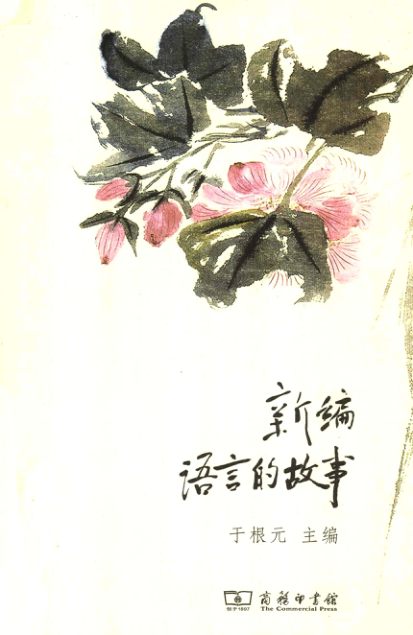 新编
语言的故事
于根元 主编
创于1897
商務印書館
The Commercial Press